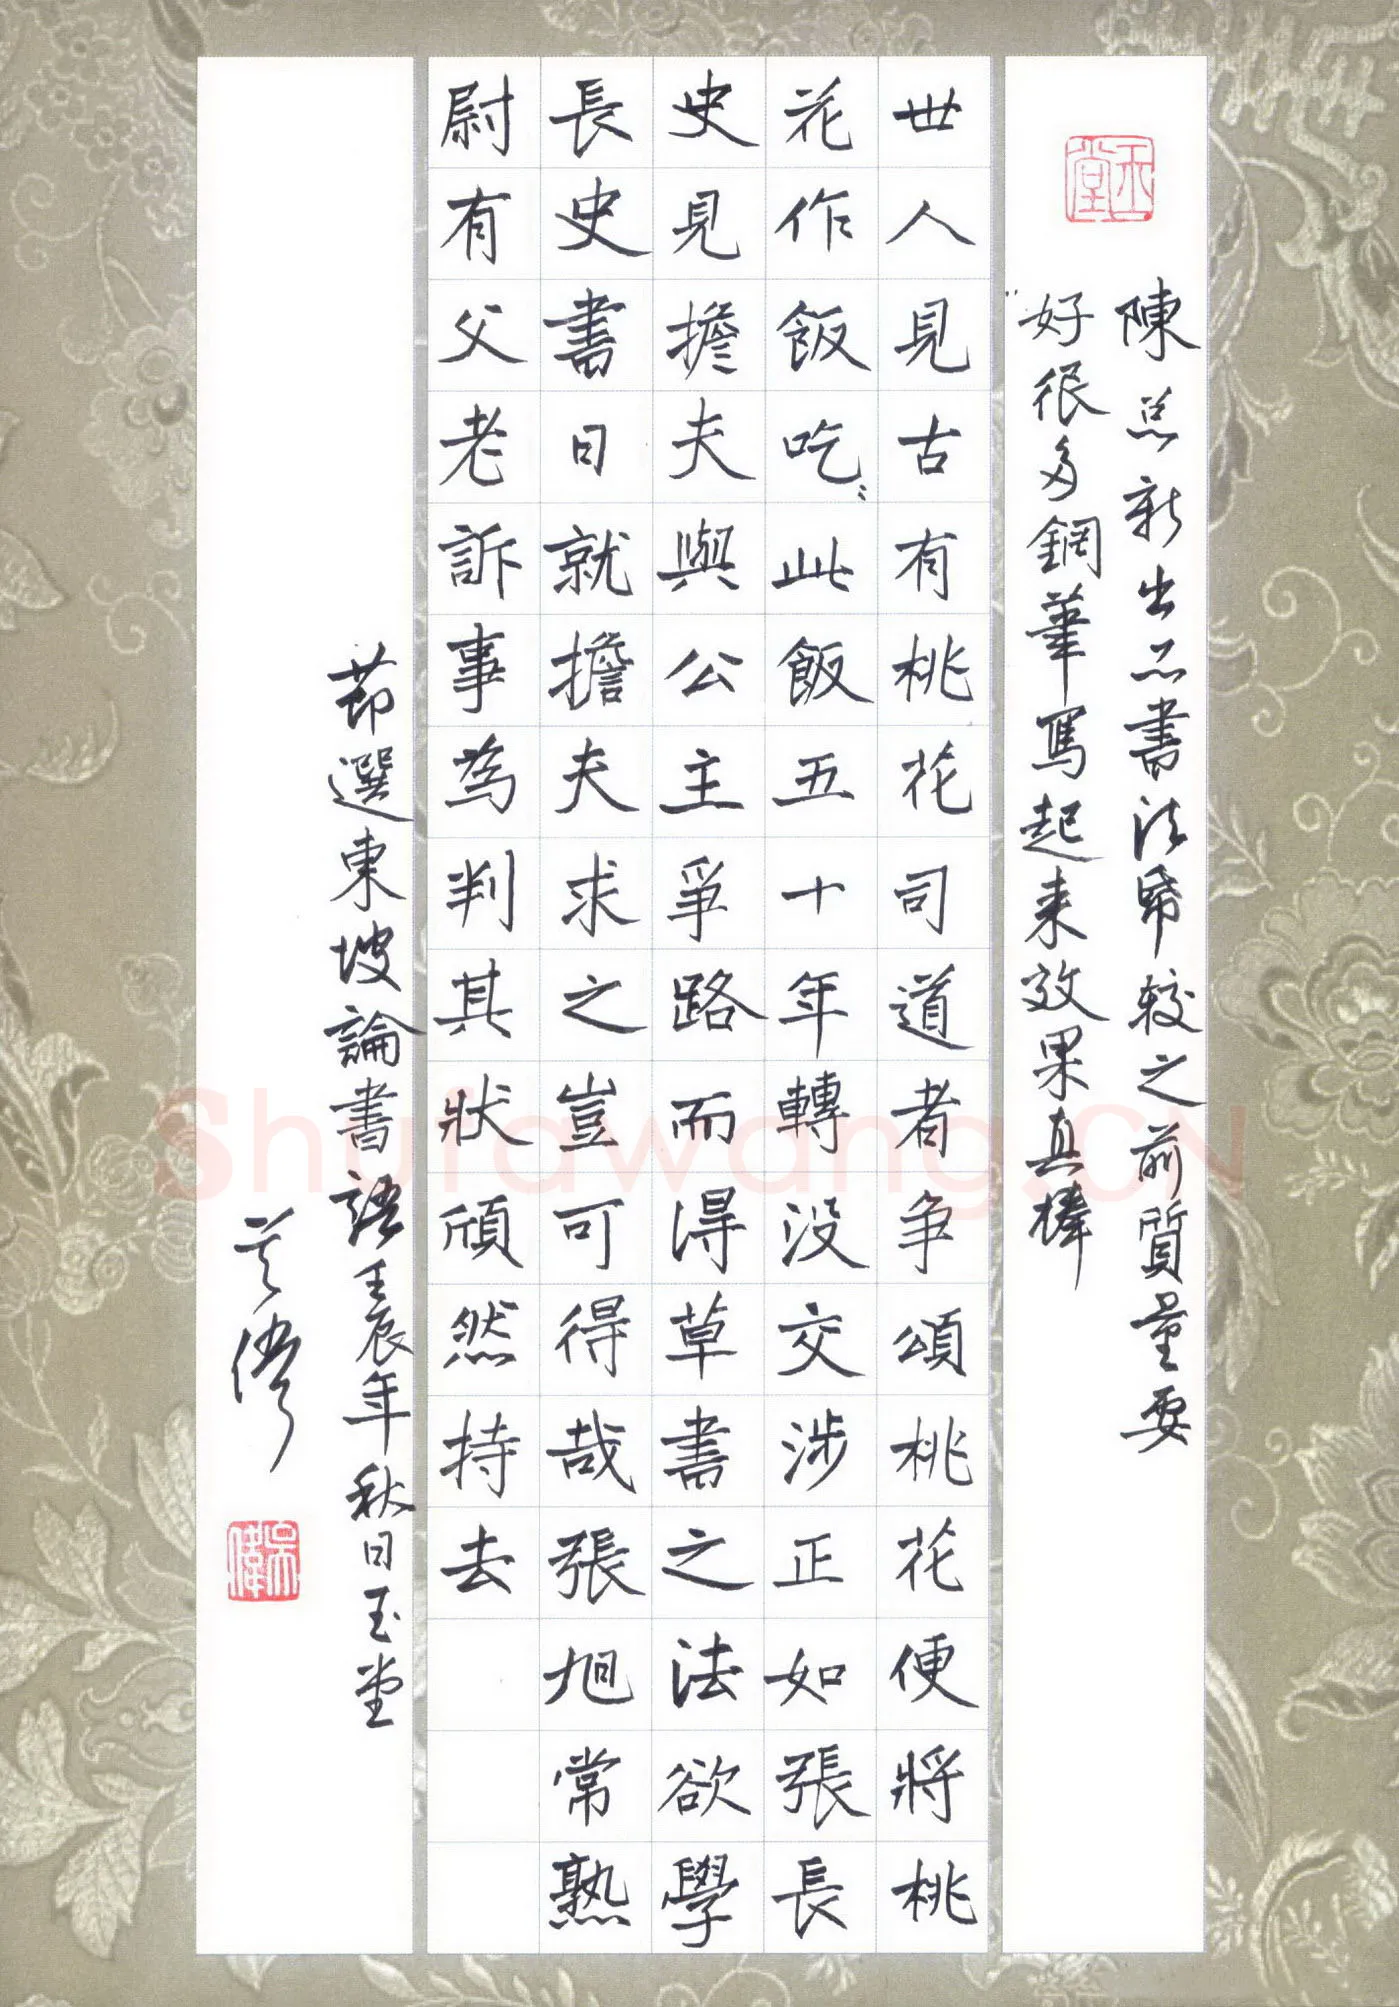 玉堂
陳总新出品書法纸較之前質量要
好很多鋼筆写起来效果真棒
世人見古有桃花司道者争頌桃花便將桃
花作飯吃此飯五十年轉没交涉正如張長
史見擔夫與公主爭路而得草書之法欲學
長史書日就擔夫求之豈可得哉張旭常熟
尉有父老訴事為判其狀頎然持去
節選東坡論書語壬辰年秋日玉堂
吴偉
Shufawang.CN